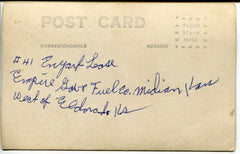 POST CARD
CORRESPONDENCE
ADDRESS
PLACE
STAMP
HERE
#41 Enyart Lease
Empire Gas & Fuel Co. Midian, Kans
West of Eldorado Ks